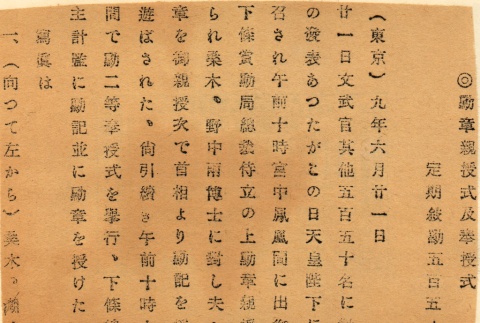 ◎勳章親授式及奉授式
定期敍勳五百五
(東京)九年六月廿一日
廿一日文武官其他五百五十名に
の發表あつたがこの日天皇陛下に
召され午前十時宮中鳳凰間に出御
下條賞勳局總裁侍立の上勳章親
られ桑木、野中兩博士に對し夫
章を御親授次で首相より勳記を
遊ばされた。尙引續き午前十時
間で勳二等奉授式を擧行、下條
主計監に勳記並に勳章を授けた
寫眞は
一、(向つて左から)桑木、